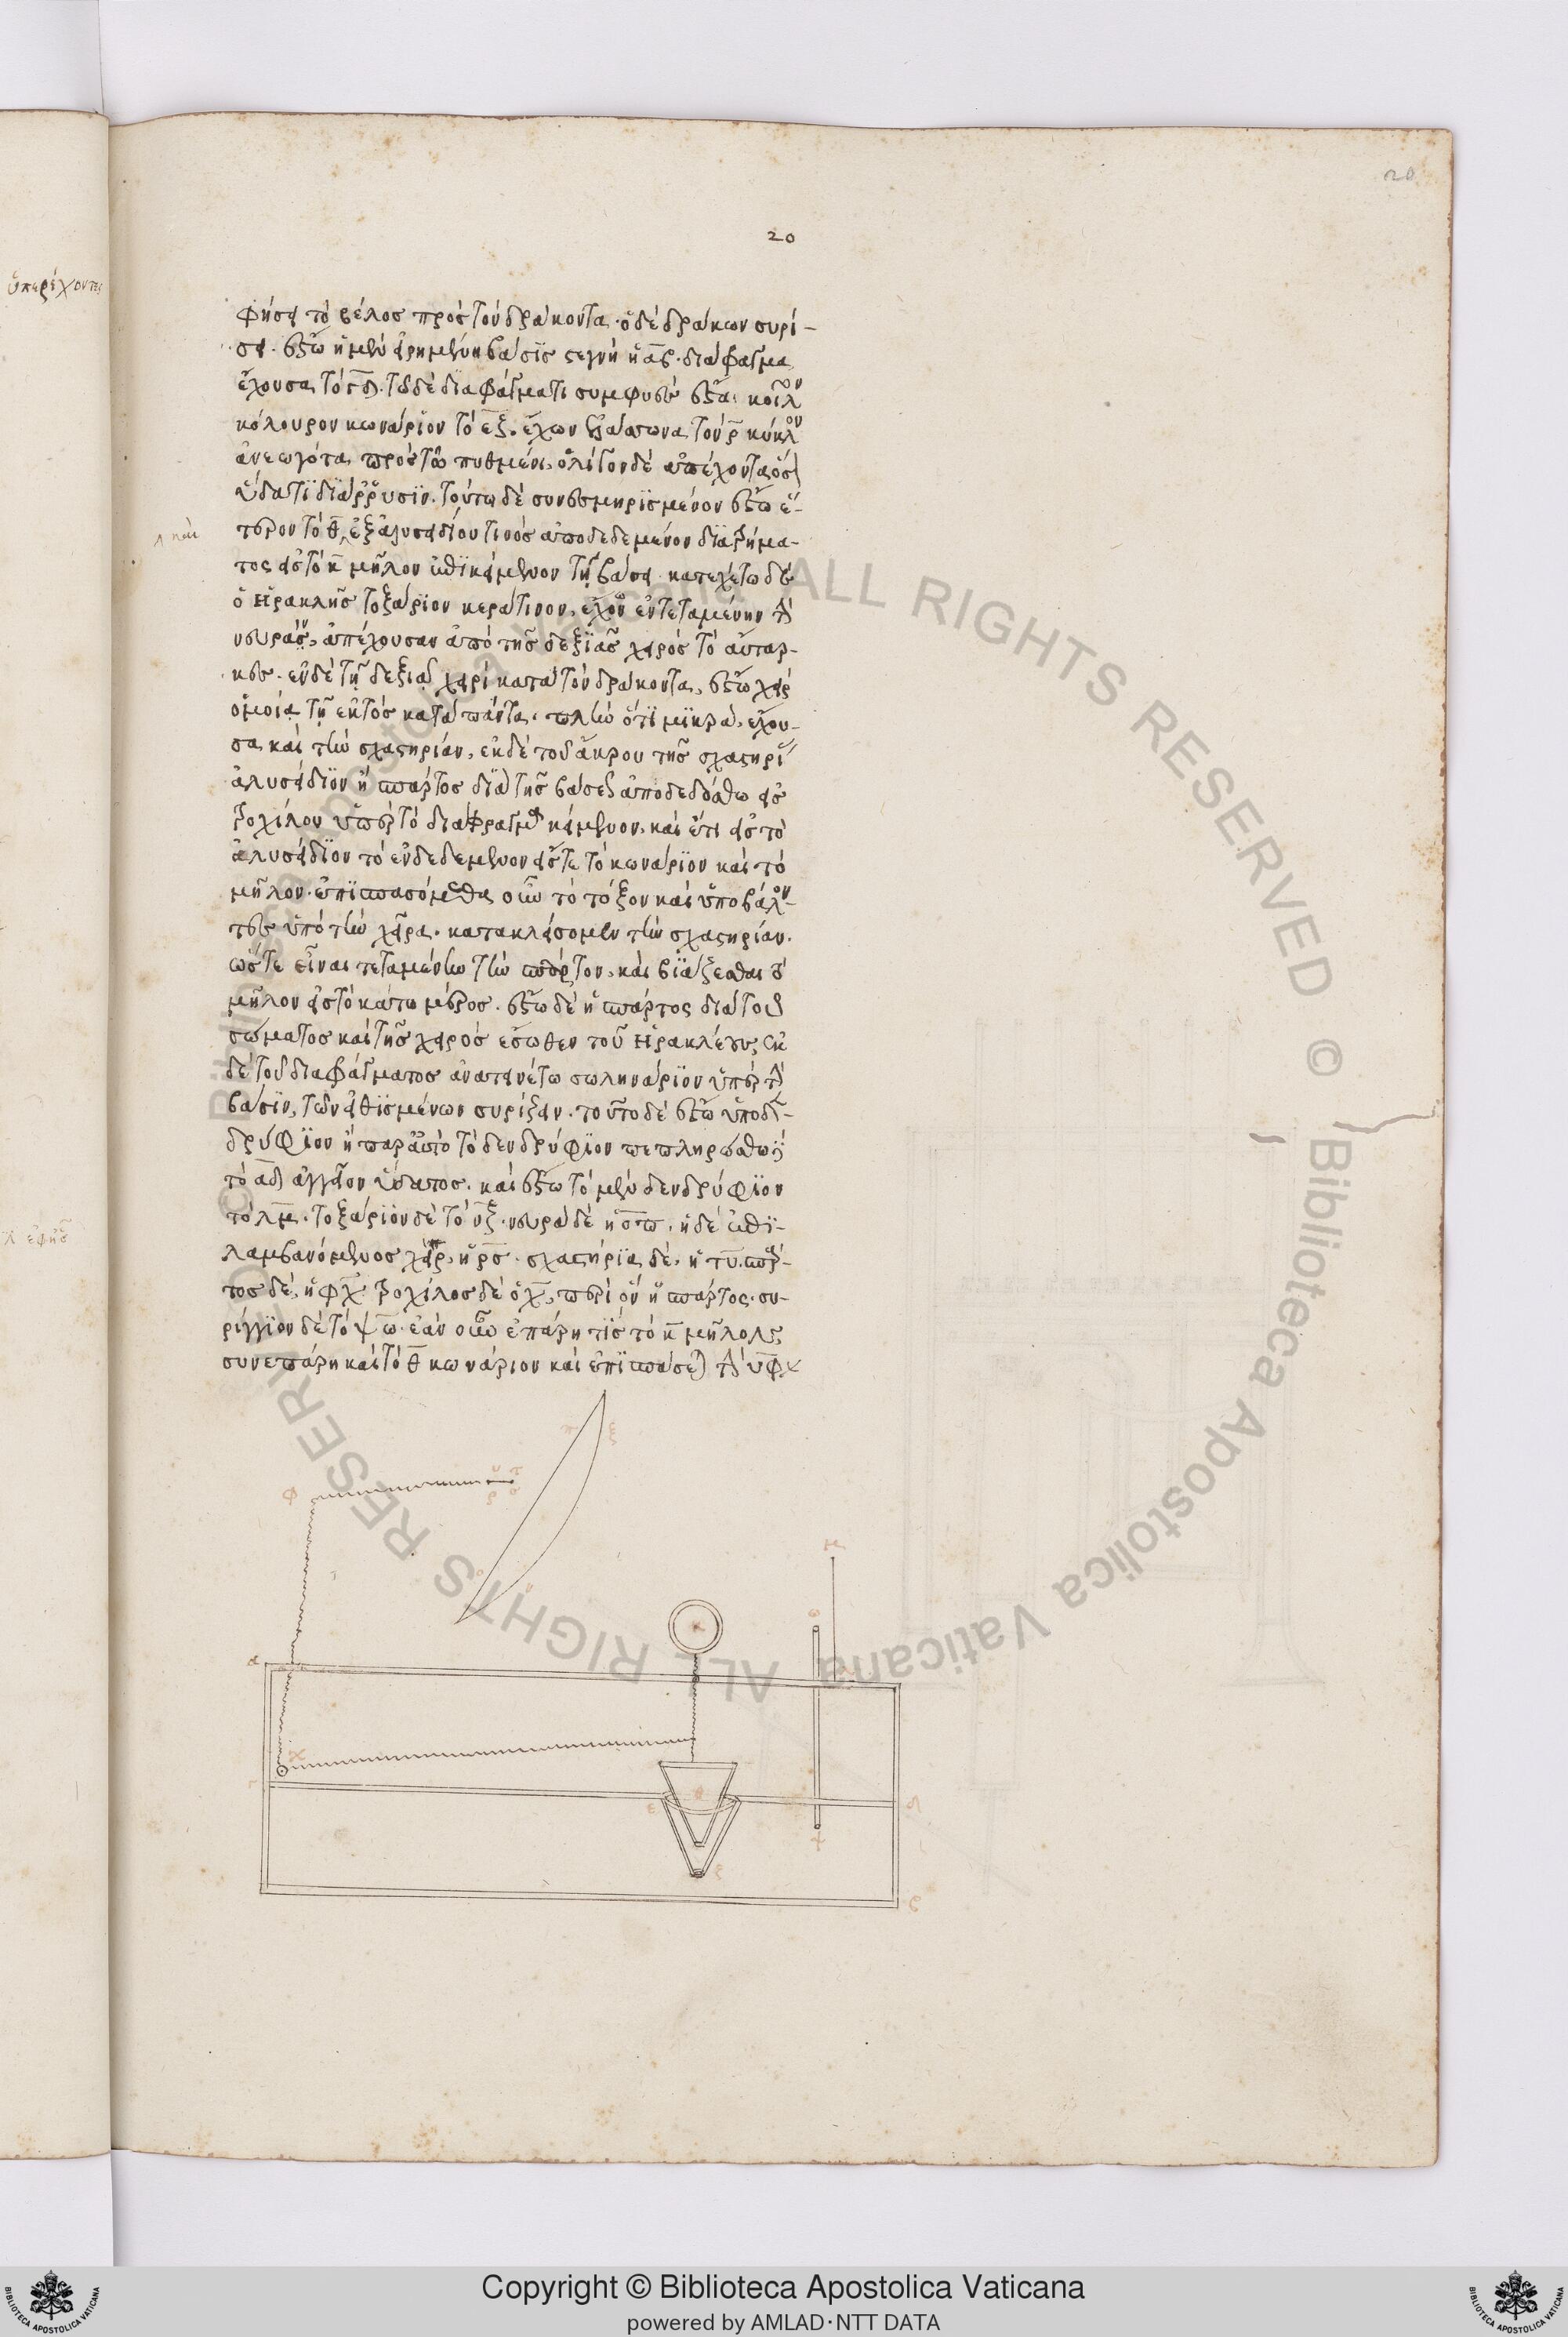 20
20
ὑπερέχοντες
φήσει τὸ βέλος πρὸς τὸν δράκοντα· ὁ δὲ δράκων συρί-
σει. ἔστω ἡ μὲν εἰρημένη βάσις στεγνὴ ἡ α̅β̅· διάφραγμα
ἔχουσα τὸ γ̅δ̅. τῷ δὲ διαφράγματι συμφυὲς ἔστω κοῖλον
κόλουρον κωνάριον τὸ ε̅ζ̅. ἔχων ἐλάσσωνα τὸν ζ̅ κύκλον
ἀνεωγότα πρὸς τῷ πυθμένι, ὀλίγον δὲ ἀπέχοντα ὅσον
ὕδατι διάρρυσιν. τούτῳ δὲ συνεσμηρισμένον ἔστω ἕ-
τερον τὸ θ̅, ἐξ ἁλυσειδίου τινὸς ἀποδεδεμένον διατρήμα-
καὶ
τος εἰς τὸ κ̅ μῆλον ἐπικείμενον τῇ βάσει. κατεχέτω δὲ
ὁ Ἡρακλῆς τοξάριον κεράτινον, ἔχον ἐντεταμένην τὴν
νευρὰν, ἀπέχουσαν ἀπὸ τῆς δεξιᾶς χειρὸς τὸ αὔταρ-
κες. ἐν δὲ τῇ δεξιᾷ χειρὶ κατὰ τὸν δράκοντα, ἔστω χεὶρ
ὁμοία τῇ ἐκτὸς κατὰ πάντα. πλὴν ὅτι μικρὰ, ἔχου-
σα καὶ τὴν σχαστηρίαν, ἐκ δὲ τοῦ ἄκρου τῆς σχαστηρίας
ἁλυσείδιον ἢ σπάρτος διὰ τῆς βάσεως ἀποδεδόσθω εἰς
τροχίλον ὑπὲρ τὸ διάφραγμα κείμενον. καὶ ἔτι εἰς τὸ
ἁλυσείδιον τὸ ἐνδεδεμένον εἴς τε τὸ κωνάριον καὶ τὸ
μῆλον. ἐπισπασόμεθα οὖν τὸ τόξον καὶ ὑποβάλον-
τες ὑπὸ τὴν χεῖρα. κατακλείσομεν τὴν σχαστηρίαν.
ὥστε εἶναι τεταμένην τὴν σπάρτον, καὶ βιάζεσθαι τὸ
μῆλον εἰς τὸ κάτω μέρος. ἔστω δὲ ἡ σπάρτος διὰ τοῦ
σώματος καὶ τῆς χειρὸς ἔσωθεν τοῦ Ἡρακλέους. ἐκ
δὲ τοῦ διαφράγματος ἀνατεινέτω σωληνάριον ὑπὲρ τὴν
βάσιν, τῶν εἰθισμένων συρίζειν. τοῦτο δὲ ἔστω ὑπὸ δέν-
δρύφιον ἢ παρ' αὐτὸ τὸ δενδρύφιον πεπληρώσθω
τὸ α̅δ̅ ἀγγεῖον ὕδατος. καὶ ἔστω τὸ μὲν δενδρύφιον
τὸ λ̅μ̅. τοξάριον δὲ τὸ ν̅ξ̅. νευρὰ δὲ ἡ ο̅π̅. ἡ δὲ ἐπι-
λαμβανόμενος χεὶρ, ἡ ρ̅σ̅. σχαστηρία δὲ, ἡ τ̅υ̅. σπάρ-
τος δὲ, ἡ φ̅χ̅. τροχίλος δὲ ὁ χ̅, περὶ ὃν ἡ σπάρτος. συ-
ρίγγιον δὲ τὸ ψ̅ω̅. ἐὰν οὖν ἐπάρῃ τις τὸ κ̅ μῆλον
συνεπάρῃ καὶ τὸ θ̅ κωνάριον καὶ ἐπισπάσεται τὴν υ̅φ̅χ̅
ξ
φ
ν
α
κ
χ
θ
ε
ζ
δ
Copyright © Biblioteca Apostolica Vaticana
powered by AMLAD·NTT DATA